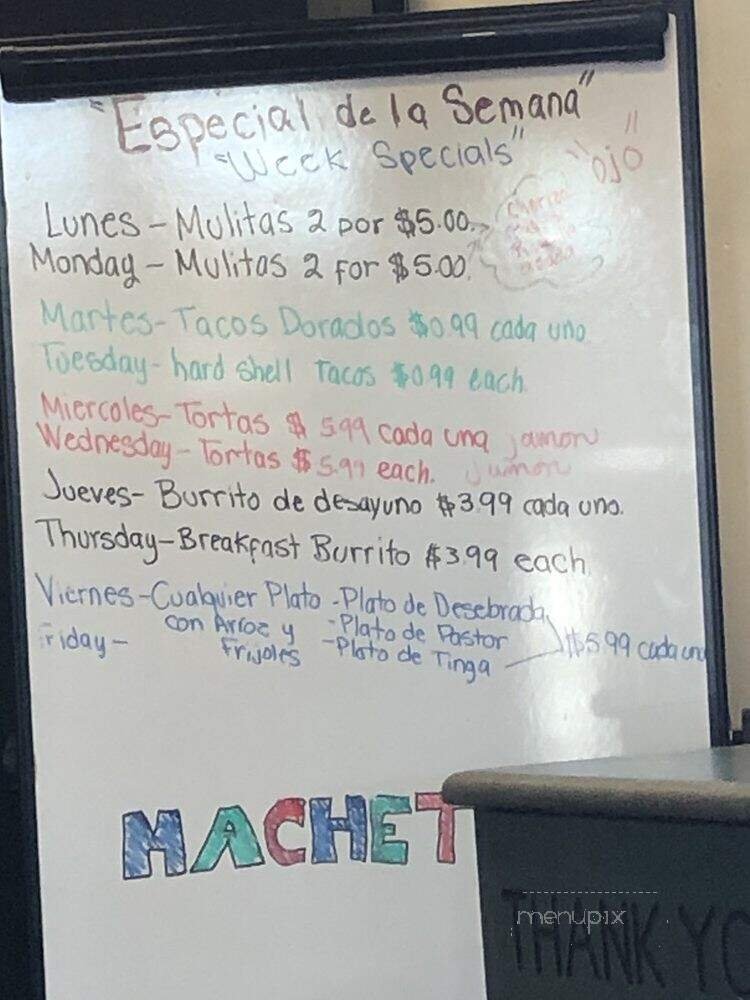 "Especial de la Semana"
"Week Specials"
"ojo"
Lunes - Mulitas 2 por $5.00.
Monday - Mulitas 2 for $5.00.
Martes - Tacos Dorados $0.99 cada uno
Tuesday - hard shell Tacos $0.99 each.
Miercoles - Tortas $ 5.99 cada una jamon
Wednesday - Tortas $5.99 each. Jumon
Jueves - Burrito de desayuno $3.99 cada uno.
Thursday - Breakfast Burrito $3.99 each.
Viernes - Cualquier Plato - Plato de Desebrada
con Arroz y - Plato de Pastor
Friday - Frijoles - Plato de Tinga
$5.99 cada uno
MACHET
THANK YO
menupix